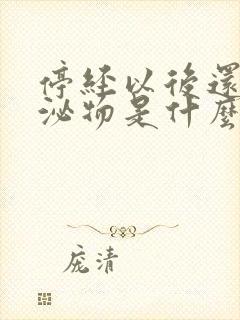 停經以後還
泌物是什麼
庞清